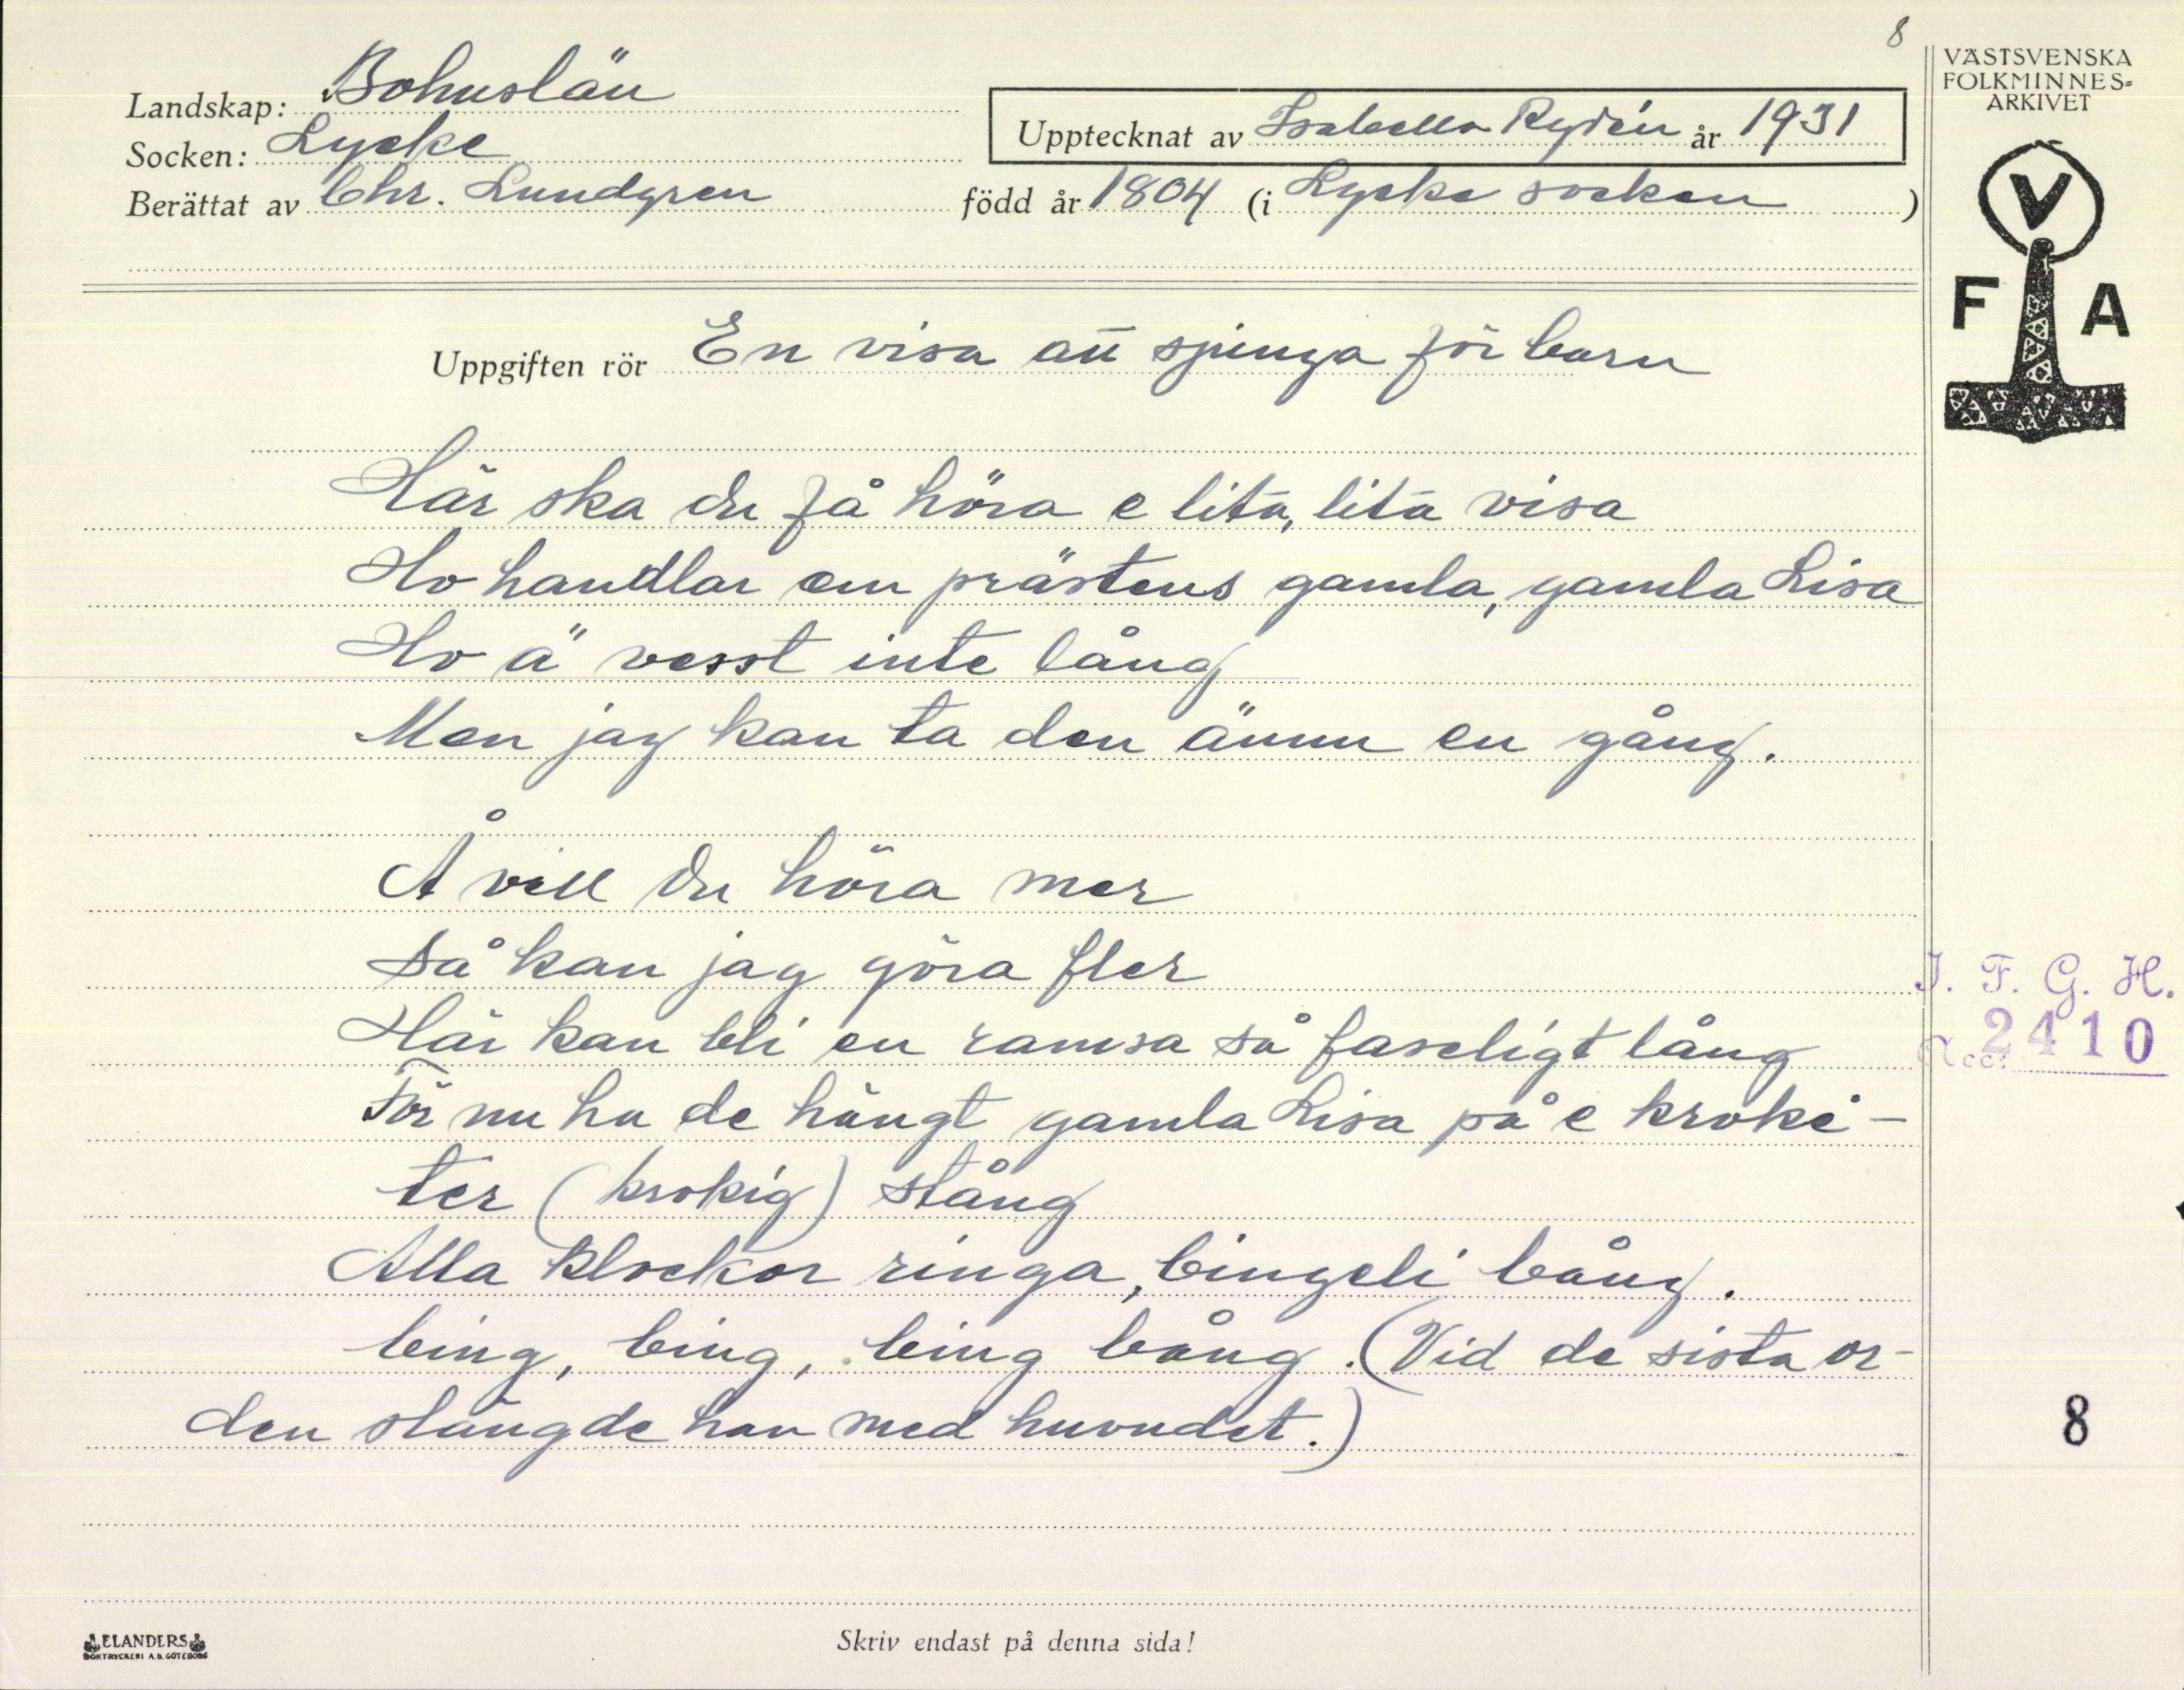 8
VÄSTSVENSKA
FOLKMINNES-
ARKIVET
Landskap: Bohuslän
Upptecknat av Isabella Rydén år 1931
Socken: Lycke
Berättat av Chr. Lundgren född år 1804 (i Lycke socken)
V
F A
Uppgiften rör En visa att sjunga för barn
Här ska du få höra e lita, lita visa
Ho handlar om prästens gamla, gamla Lisa
Ho ä vesst inte lång
Men jag kan ta den ännu en gång.
Å vill du höra mer
Så kan jag göra fler
Här kan bli en ramsa så faseligt lång
För nu ha de hängt gamla Lisa på e kroke-
ter (krokig) stång
Alla klockor ringa, bingeli bång.
bing, bing, bing bång. (Vid de sista or-
den slängde han med huvudet.)
I. F. G. H.
Acc. 2410
8
ELANDERS
BOKTRYCKERI A.B. GÖTEBORG
Skriv endast på denna sida!